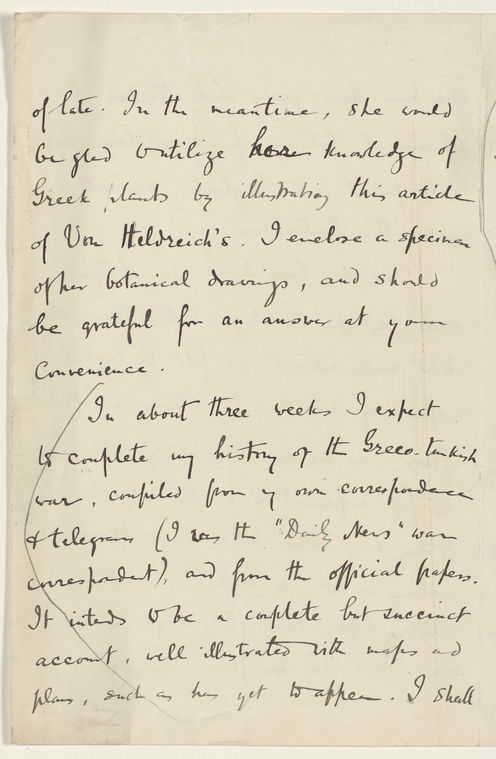 of late. In the meantime, she would
be glad to utilize her knowledge of
Greek plants by illustrating this article
of Von Heldreich's. I enclose a specimen
of her botanical drawings, and should
be grateful for an answer at your
convenience.
In about three weeks I expect
to complete my history of the Greco-turkish
war, compiled from my own correspondence
& telegrams (I was the "Daily News" war
correspondent), and from the official papers.
It intends to be a complete but succinct
account, well illustrated with maps and
plans, such as has yet to appear. I shall